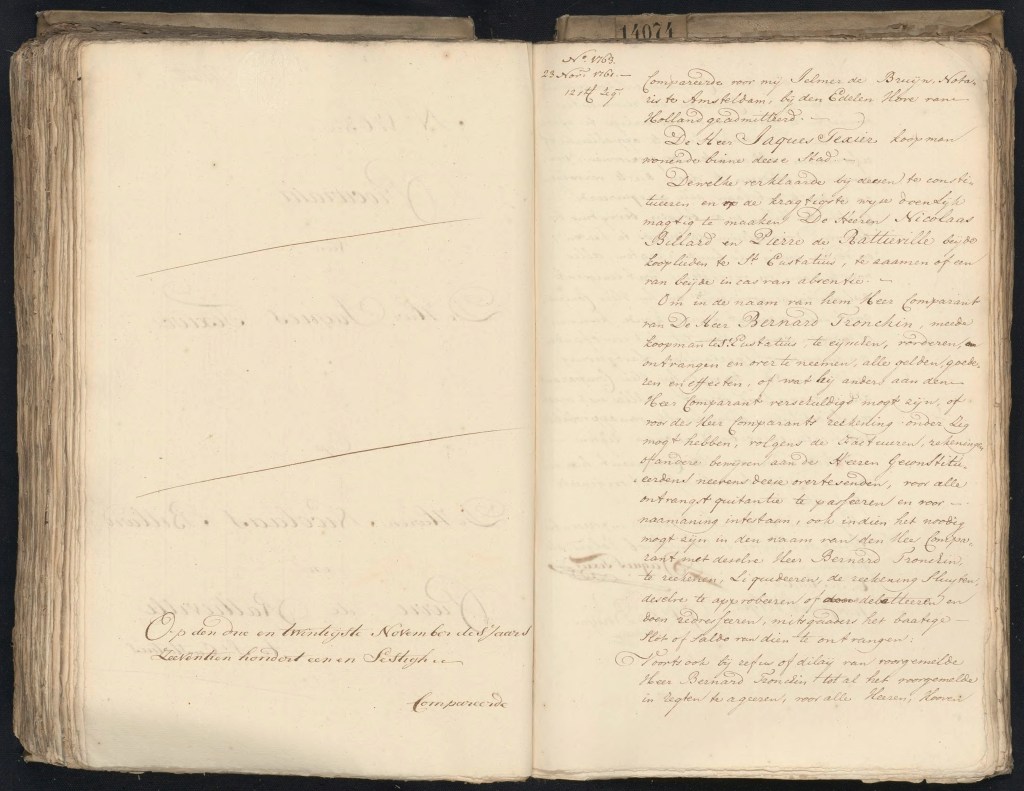 Op den drie en twentigste November des Jaars
Zeeventien hondert een en Sestigh
Compareerde
14074
No. 1763.
23 Nov. 1761.
Compareerde voor mij Jelmer de Bruijn. Nota-
ris te Amsteldam, bij den Edelen Hove van
Holland geadmitteerd.
De Heer Jaques Texier koopman
wonende binne deese Stad.
Dewelke verklaarde bij deesen te consti-
tueeren en op de kragtigste wijse doenlijk
magtig te maaken De Heeren Nicolaas
Billard en Pierre de Rattieville beijde
kooplieden te St. Eustatius, te saamen of een
van beijde in cas van absentie.
Om in de naam van hem Heer Comparant
van De Heer Bernard Tronchin, meede
koopman te St. Eustatius te eijschen, vorderen, en
ontvangen en over te neemen, alle gelden, goede-
ren en effecten, of wat hij anders aan den
Heer Comparant verschuldigd mogt zijn, of
voor des Heer Comparants reekening onder zig
mogt hebben, volgens de Factueren, rekeninge
of andere bewijsen aan de Heeren Geconstitu-
eerdens neevens deese over te senden, voor alle
ontvangst quitantie te passeeren en voor
naamaning in te staan, ook indien het noodig
mogt zijn, in den naam van den Heer Compa-
rant met deselve Heer Bernard Tronchin,
te reekenen, Liquideeren, de reekening Sluijten,
deselve te approbeeren of debatteeren en
doen redresseeren, mitsgaders het baatige
Slot of Saldo van dien te ontvangen:
Voorts ook bij refus of dilaij van voorgemelde
Heer Bernard Tronchin tot al het voorgemelde
in regten te ageeren, voor alle Heeren, Hoven